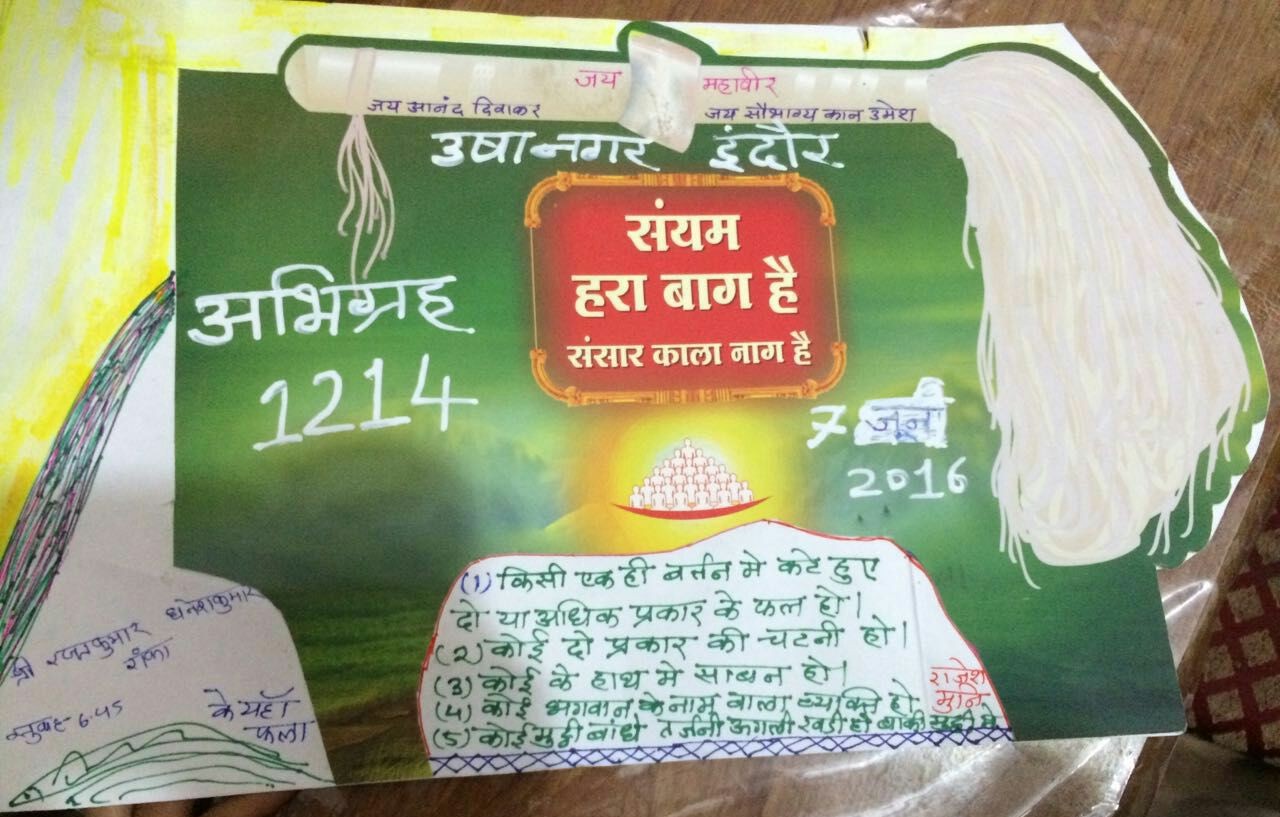 जय महावीर
जय आनंद दिवाकर जय सौभाग्य कान उमेश
उषानगर इंदौर
संयम
हरा बाग है
संसार काला नाग है
अभिग्रह
1214
7 जून
2016
(1) किसी एक ही बर्तन मे कटे हुए
दो या अधिक प्रकार के फल हो।
(2) कोई दो प्रकार की चटनी हो।
(3) कोई के हाथ मे साबुन हो।
(4) कोई भगवान के नाम वाला व्यक्ति हो
(5) कोई मुट्ठी बांधे तर्जनी ऊंगली खडी हो बाकी मुट्ठी मे
राजेश
मुनि
श्री राजकुमार धनेशकुमार
रांका
सुबह- 6.45
के यहाँ
फला